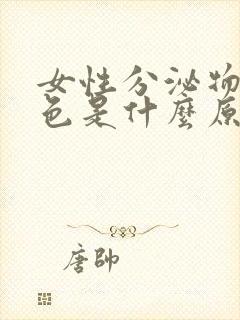 女性分泌物
色是什麼原
唐帥